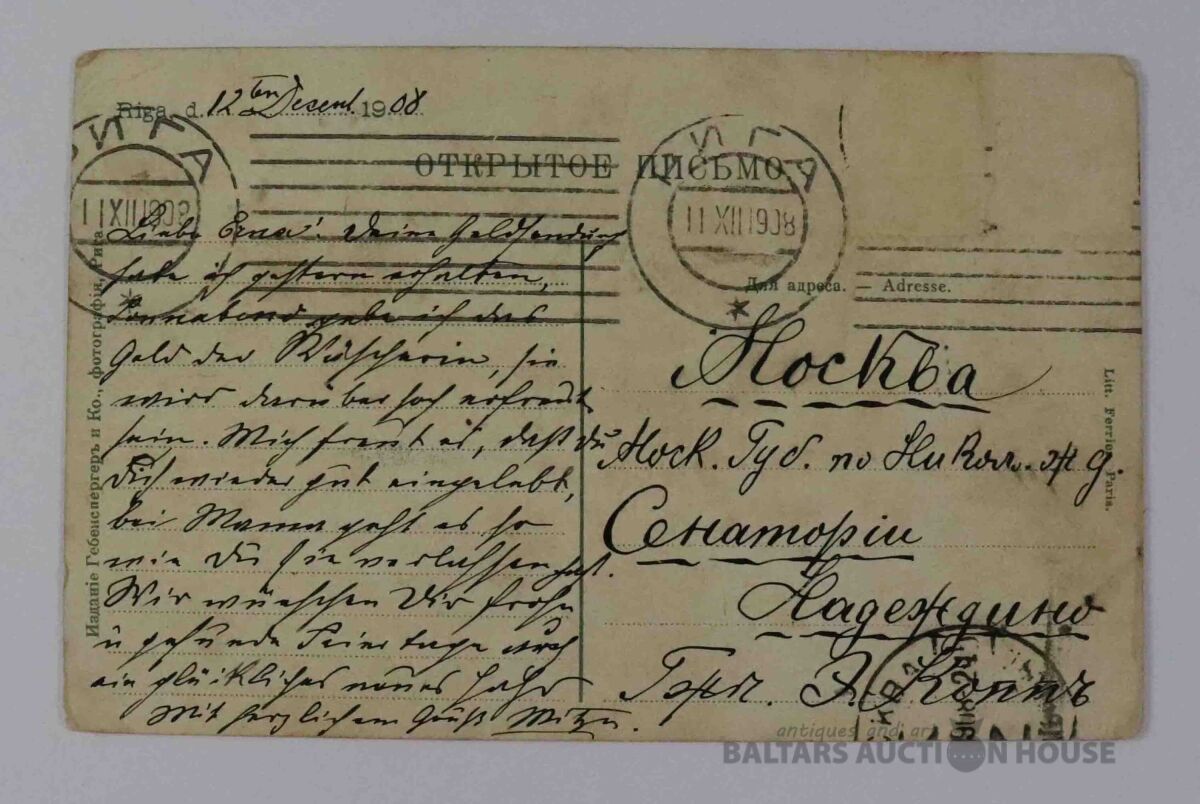 Riga, d. 12ten Desem. 1908
ОТКРЫТОЕ ПИСЬМО.
РИГА
11 XII 1908
РИГА
11 XII 1908
Для адреса. — Adresse.
Liebe Erna! Deine Geldsendung
habe ich gestern erhalten,
Sonnabend gebe ich das
Geld der Wäscherin, sie
wird darüber hoch erfreut
sein. Mich freut es, daß du
Dich wieder gut eingelebt,
bei Mama geht es so
wie Du sie verlassen hast.
Wir wünschen Dir frohe
u gesunde Feiertage auch
ein glückliches neues Jahr
Mit herzlichem Gruß
Москва
Моск. Губ. по Никол. ж д.
Сенаторiи
Надеждино
Э. Коппъ
Изданiе Гебенспергеръ и Ко., фотографiя, Рига.
Litt. Ferrier, Paris.
antiques and art
BALTARS AUCTION HOUSE